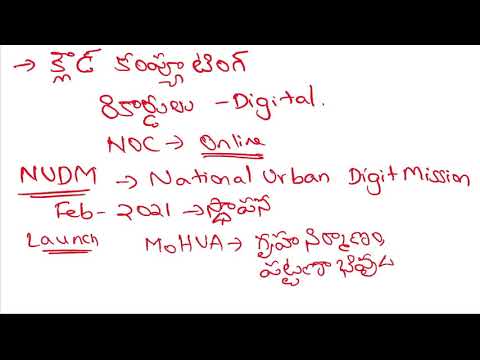 → క్లౌడ్ కంప్యూటింగ్
రికార్డులు - Digital.
NOC → Online
NUDM → National Urban Digit Mission
Feb - 2021 → స్థాపన
Launch MOHUA → గృహ నిర్మాణం
పట్టణాభివృ